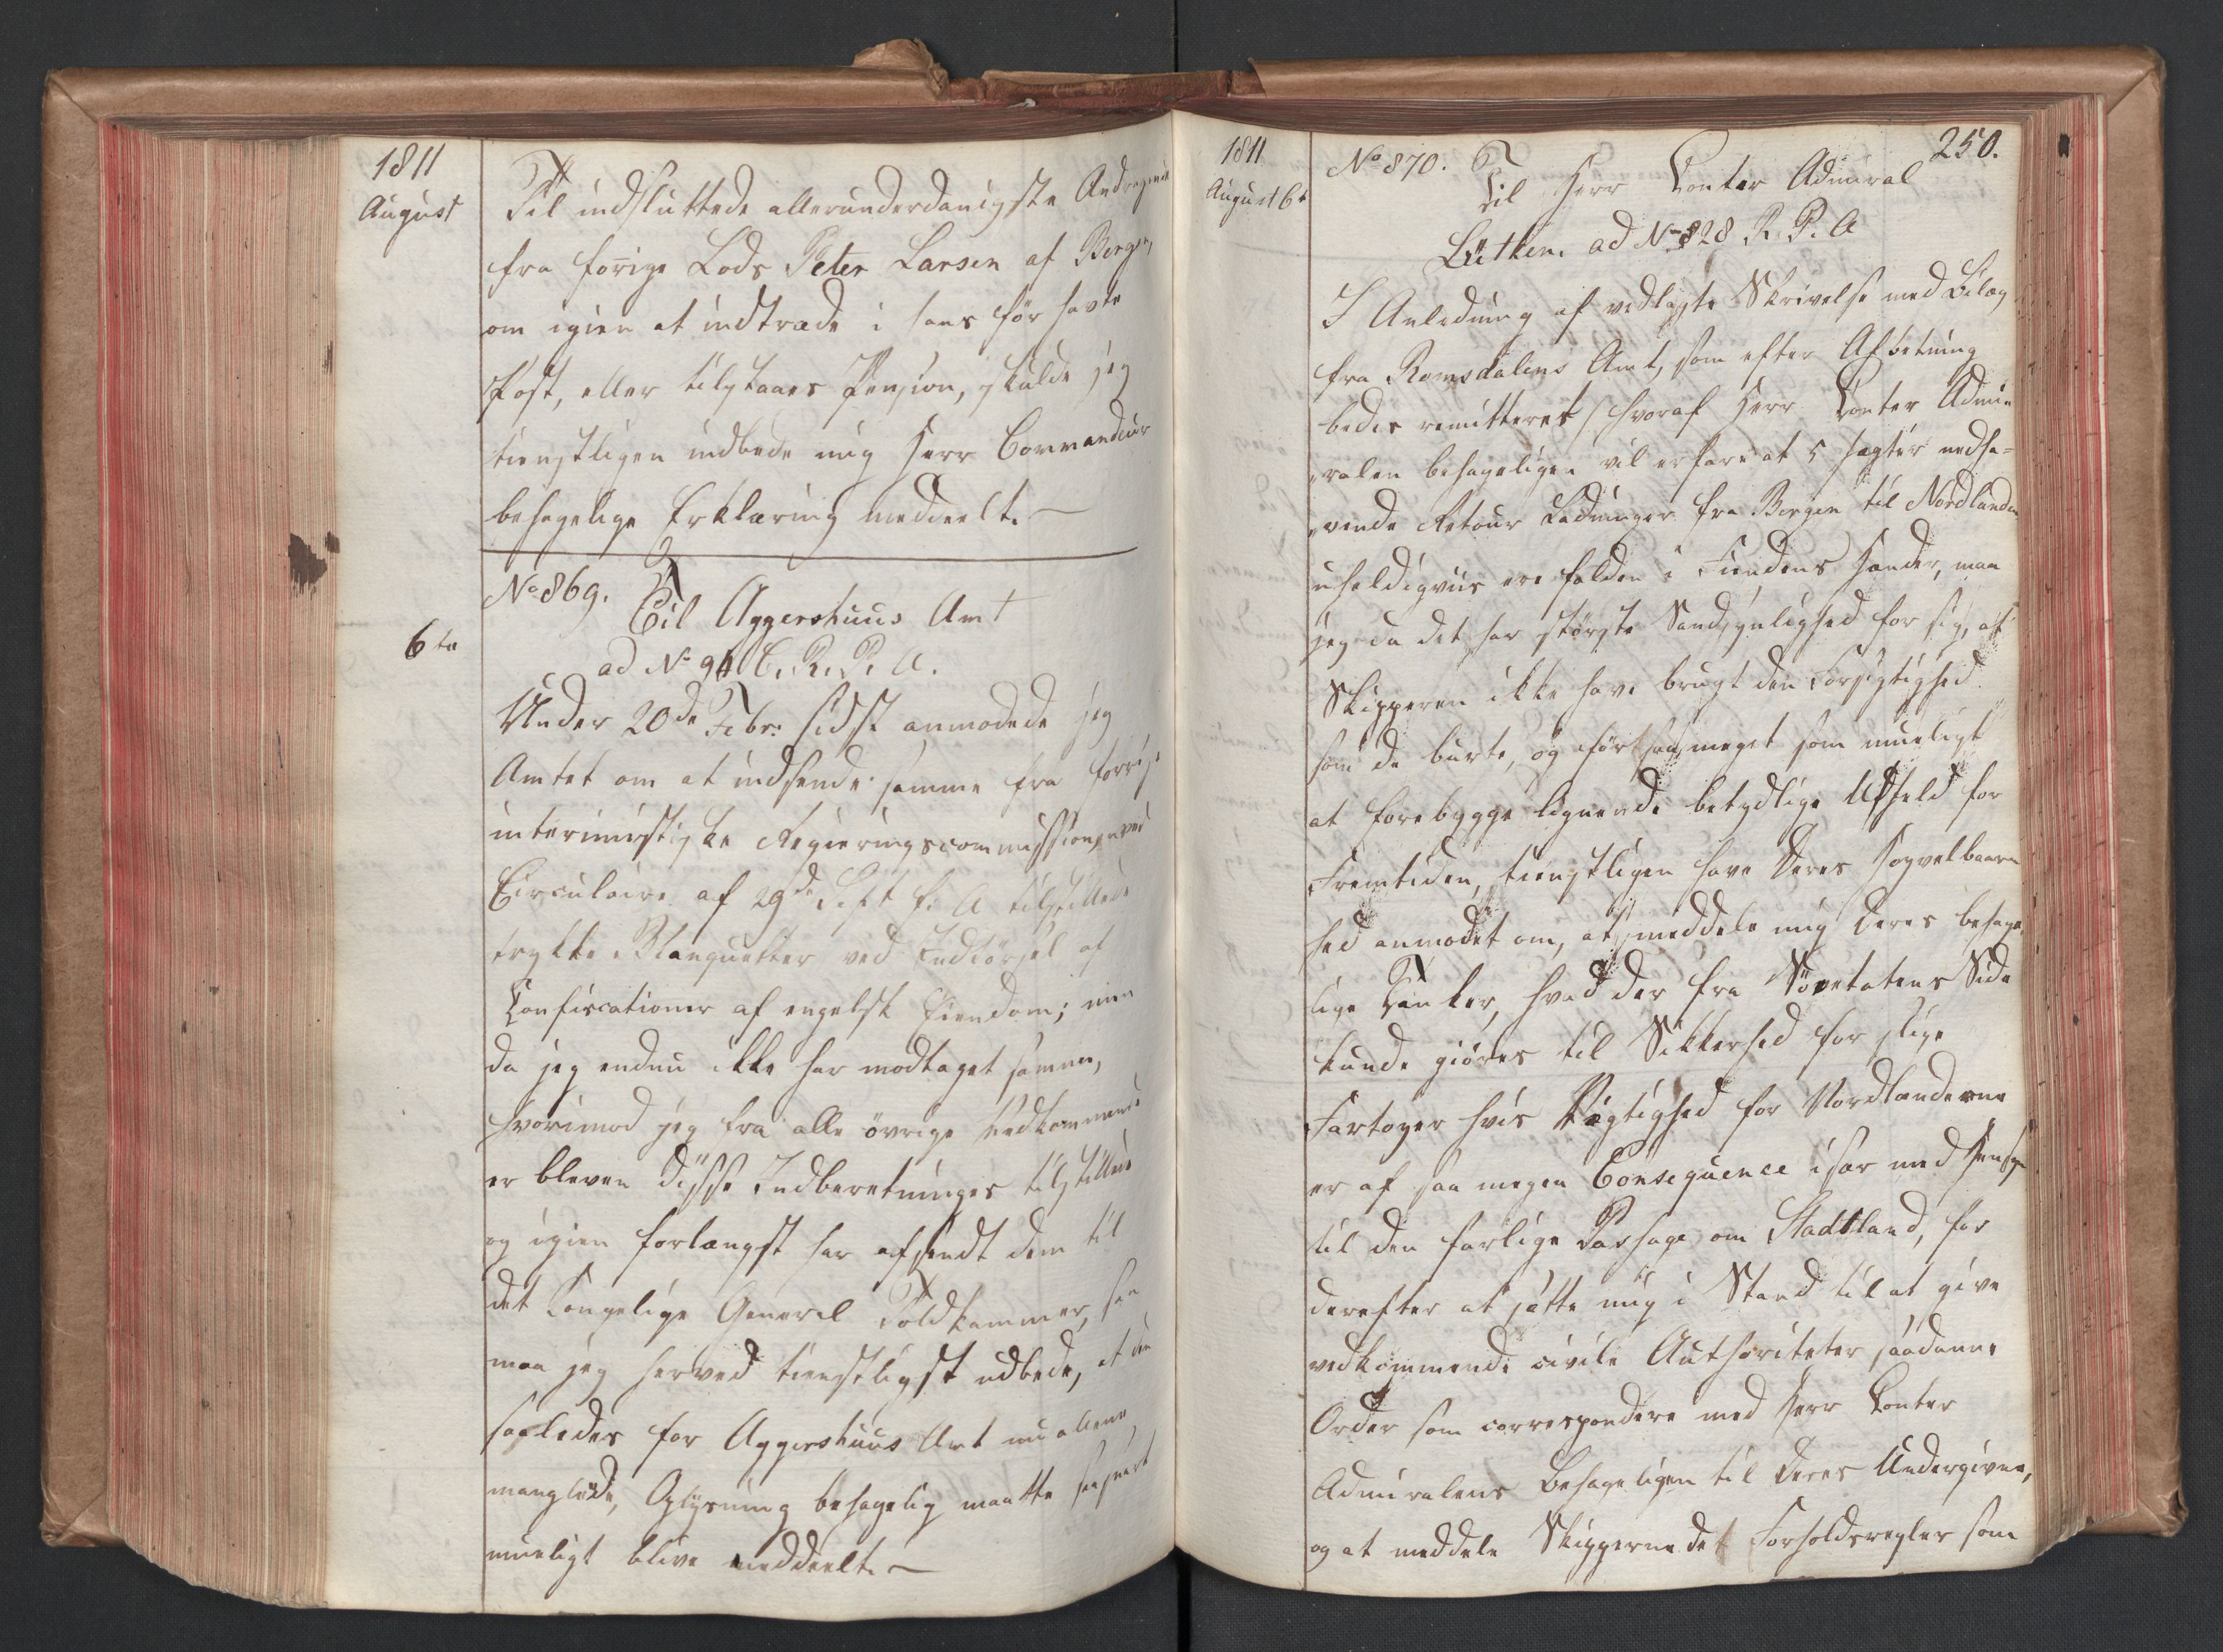 1811
August
Til indsluttede allerunderdanigste Andragende
fra forrige Lods Peter Larsen af Bergen,
om igien at indtræde i hans før havte
Post, eller tilstaaes Pension, skulde jeg
tienstligen indbede mig Herr Commandeur
behagelige Erklæring meddeelt. —
No 869.
6te
Til Aggershuus Amt
ad No 94 C. R. P. A.
Under 20de Febr: sidst anmodede jeg
Amtet om at indsende samme fra forrige
interimistiske Regieringscommission ved
Circulaire af 29de Sept f. A tilstillede
trykte Blanquetter ved Indførsel af
Confiscationer af engelsk Eiendom; men
da jeg endnu ikke har modtaget samme,
hvorimod jeg fra alle øvrige Vedkommende
er bleven disse Indberetninger tilstillede
og igien forlængst har afsendt dem til
det Kongelige General Toldkammer, saa
maa jeg herved tienstligst udbede, at den
saaledes for Aggershuus Amt nu alene
manglede, Oplysning behagelig maatte saasnart
mueligt blive meddeelt. —
1811
August 6te
250.
No 870.
Til Herr Contar Admiral
Lütken. ad No 828 R. P. A
I Anledning af vedlagte Skrivelse med Bilag
fra Romsdalens Amt, som efter Afbetning
bedes remitteret, hvoraf Herr Conter Admi-
ralen behageligen vil erfare at 5 Jægter medha-
vende Retour Ladninger fra Bergen til Nordlanden
uheldigviis ere falden i Fiendens Hænder, maa
jeg da det har største Sandsynlighed for sig, at
Skipperen ikke have brugt den Forsigtighed
som de burte, og for saa meget som mueligt
at forebygge lignende betydlige Uheld for
Fremtiden, tienstligen have Deres Høyvelbaaren
hed anmodet om, at meddele mig Deres behage
lige Tanker, hvad der fra Søeetatens Side
kunde giøres til Sikkerhed for slige
Fartøyer hvis Vigtighed for Nordlanderne
er af saa megen Consequence især med Hensyn
til den farlige Passage om Stadtland, for
derefter at sætte mig i Stand til at give
vedkommende civile Authoriteter saadanne
Order som correspondere med Herr Conter
Admiralens Behageligen til Deres Undergivne,
og at meddele Skipperne det Forholdsregler som